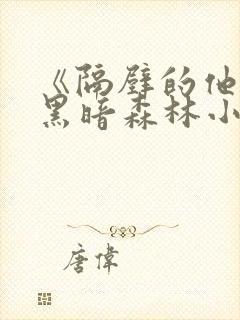 《隔壁的他
黑暗森林小
唐偉